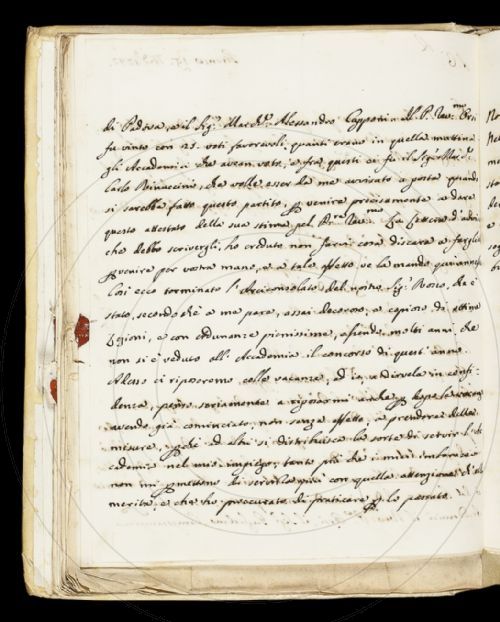 di Padova, e il Sig.r March.e Alessandro Capponi all. P.
fu vinto con 25. voti favorevoli, quanti erano in quella mattina
gli Accademici che avean voto, e fra questi ci fu il Sig.r Mar.e
Carlo Rinuccini, che volle esser da me avvisato a posta quando
si sarebbe fatto questo partito, p venire precisamente a dare
questo attestato della sua stima pel La Lettera d'avviso
che debbo scrivergli, ho creduto non farvi cosa discara a fargliela
pervenire per vostra mano, e a tale effetto ve la mando quiannessa
Così ecco terminato l'Arciconsolato del nostro Sig.r Bosco, che è
stato, secondo che a me pare, assai decoroso, e copioso di ottime
Lezioni, e con Adunanze pienissime, essendo molti anni, che
non si è veduto all. Accademia il concorso di quest'anno.
Adesso ci riposeremo colle vacanze, ed io, a dirvela in confi-
denza, penso seriamente a riposarmi anche p dopo le
avendo già cominciato, non senza effetto, a prendere delle
misure, perchè ad altri si distribuisca la sorte di servir l'Ac-
cademia nel mio impiego, tanto più che i miei imbarazzi
non mi permettono di servirla più con quella attenzione, che
merita, e che ho proccurato di praticare p lo passato.